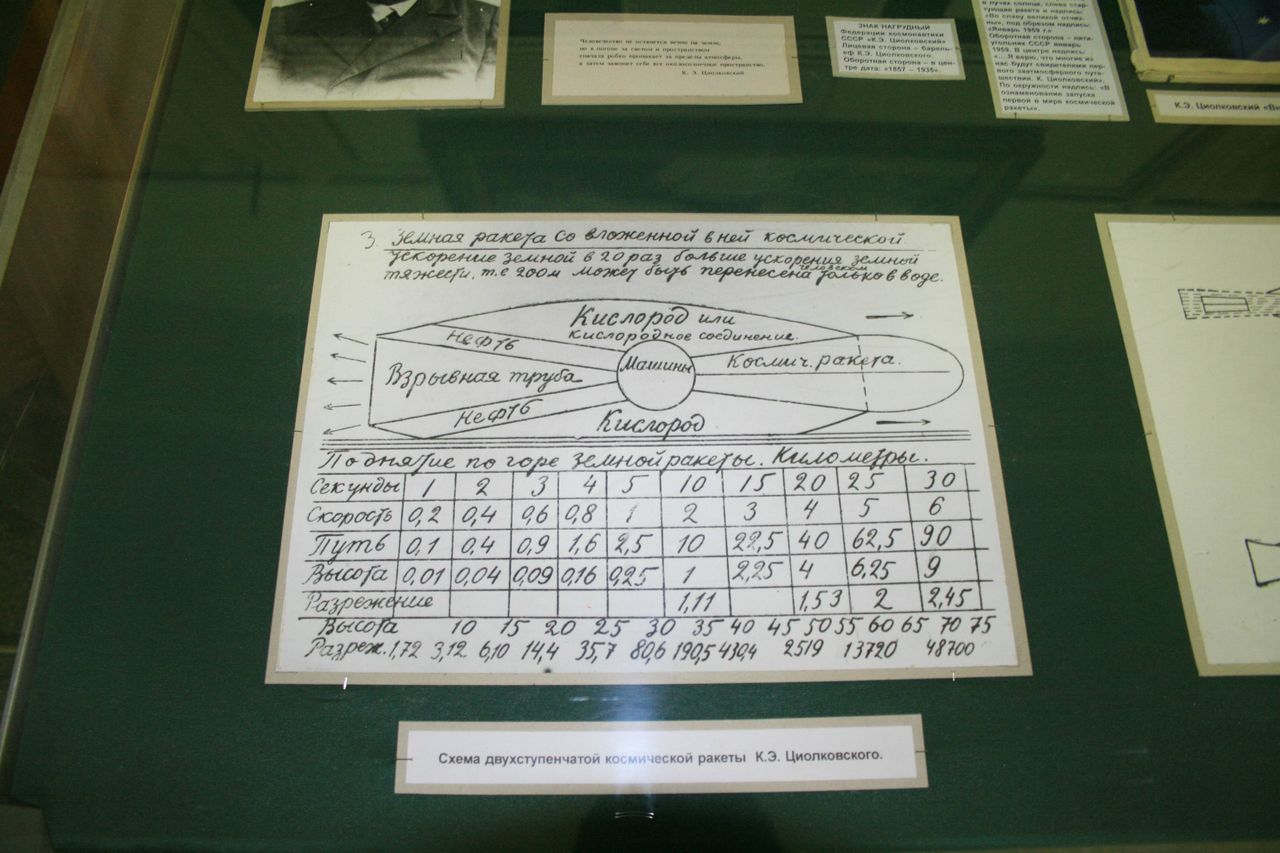 Человечество не останется вечно на земле,
но в погоне за светом и пространством
сначала робко проникнет за пределы атмосферы,
а затем завоюет себе все околосолнечное пространство.
К. Э. Циолковский
ЗНАК НАГРУДНЫЙ
Федерации космонавтики
СССР «К.Э. Циолковский»
Лицевая сторона – барель-
еф К.Э. Циолковского.
Оборотная сторона – в цен-
тре дата: «1857 – 1935».
в лучах солнца, слева стар-
тующая ракета и надпись:
«Во славу великой отчиз-
ны», под обрезом надпись:
«Январь 1959 г.»
Оборотная сторона – пяти-
угольник СССР январь
1959. В центре надпись:
«... Я верю, что многие из
нас будут свидетелями пер-
вого заатмосферного путе-
шествия. К. Циолковский».
По окружности надпись: «В
ознаменование запуска
первой в мире космической
ракеты».
К.Э. Циолковский «Вн
3. Земная ракета со вложенной в ней космической
Ускорение земной в 20 раз больше ускорения земной
тяжести, т.е 200м может быть перенесена человеком только в воде.
Кислород или
кислородное соединение.
Нефть
Машины
Космич. ракета.
Взрывная труба
Нефть
Кислород
Поднятие по горе земной ракеты. Километры.
Секунды 1 2 3 4 5 10 15 20 25 30
Скорость 0,2 0,4 0,6 0,8 1 2 3 4 5 6
Путь 0,1 0,4 0,9 1,6 2,5 10 22,5 40 62,5 90
Высота 0,01 0,04 0,09 0,16 0,25 1 2,25 4 6,25 9
Разрежение 1,11 1,53 2 2,45
Высота 10 15 20 25 30 35 40 45 50 55 60 65 70 75
Разреж. 1,72 3,12 6,10 14,4 35,7 80,6 190,5 430,4 2519 13720 48700
Схема двухступенчатой космической ракеты К.Э. Циолковского.